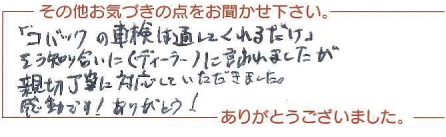 その他お気づきの点をお聞かせ下さい。
「コバックの車検は通してくれるだけ」
と知り合いに(ディーラー)に言われましたが
親切丁寧に対応していただきました。
感動です!ありがとう!
ありがとうございました。